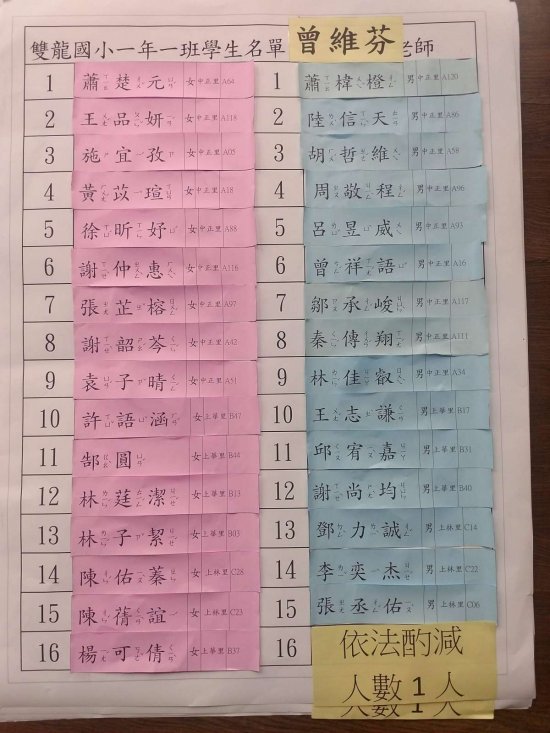 雙龍國小一年一班學生名單 曾維芬 老師
1 蕭楚元 女 中正里 A64
1 蕭椲橙 男 中正里 A120
2 王品妍 女 中正里 A118
2 陸信天 男 中正里 A86
3 施宜孜 女 中正里 A05
3 胡哲維 男 中正里 A58
4 黃苡瑄 女 中正里 A18
4 周敬程 男 中正里 A96
5 徐昕妤 女 中正里 A88
5 呂昱威 男 中正里 A93
6 謝仲惠 女 中正里 A116
6 曾祥語 男 中正里 A16
7 張芷榕 女 中正里 A97
7 鄒承峻 男 中正里 A117
8 謝韶芩 女 中正里 A42
8 秦傳翔 男 中正里 A111
9 袁子晴 女 中正里 A51
9 林佳叡 男 中正里 A34
10 許語涵 女 上華里 B47
10 王志謙 男 上華里 B17
11 郜圓 女 上華里 B44
11 邱宥嘉 男 上華里 B31
12 林莛潔 女 上華里 B13
12 謝尚均 男 上華里 B40
13 林子絜 女 上華里 B03
13 鄧力誠 男 上林里 C14
14 陳佑蓁 女 上林里 C28
14 李奕杰 男 上林里 C22
15 陳蒨誼 女 上林里 C23
15 張丞佑 男 上林里 C06
16 楊可倩 女 上華里 B37
16 依法酌減
人數1人
人數1人